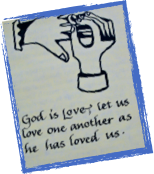 God is love; let us
love one another as
he has loved us.